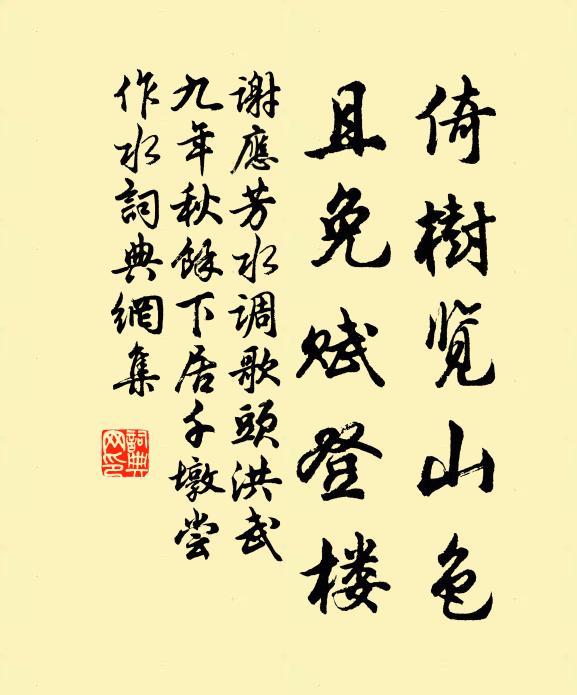 倚樹览山色
且免赋登楼
謝應芳水调歌頭洪武
九年秋餘下居千墩尝
作水詞典網集
詞典网印